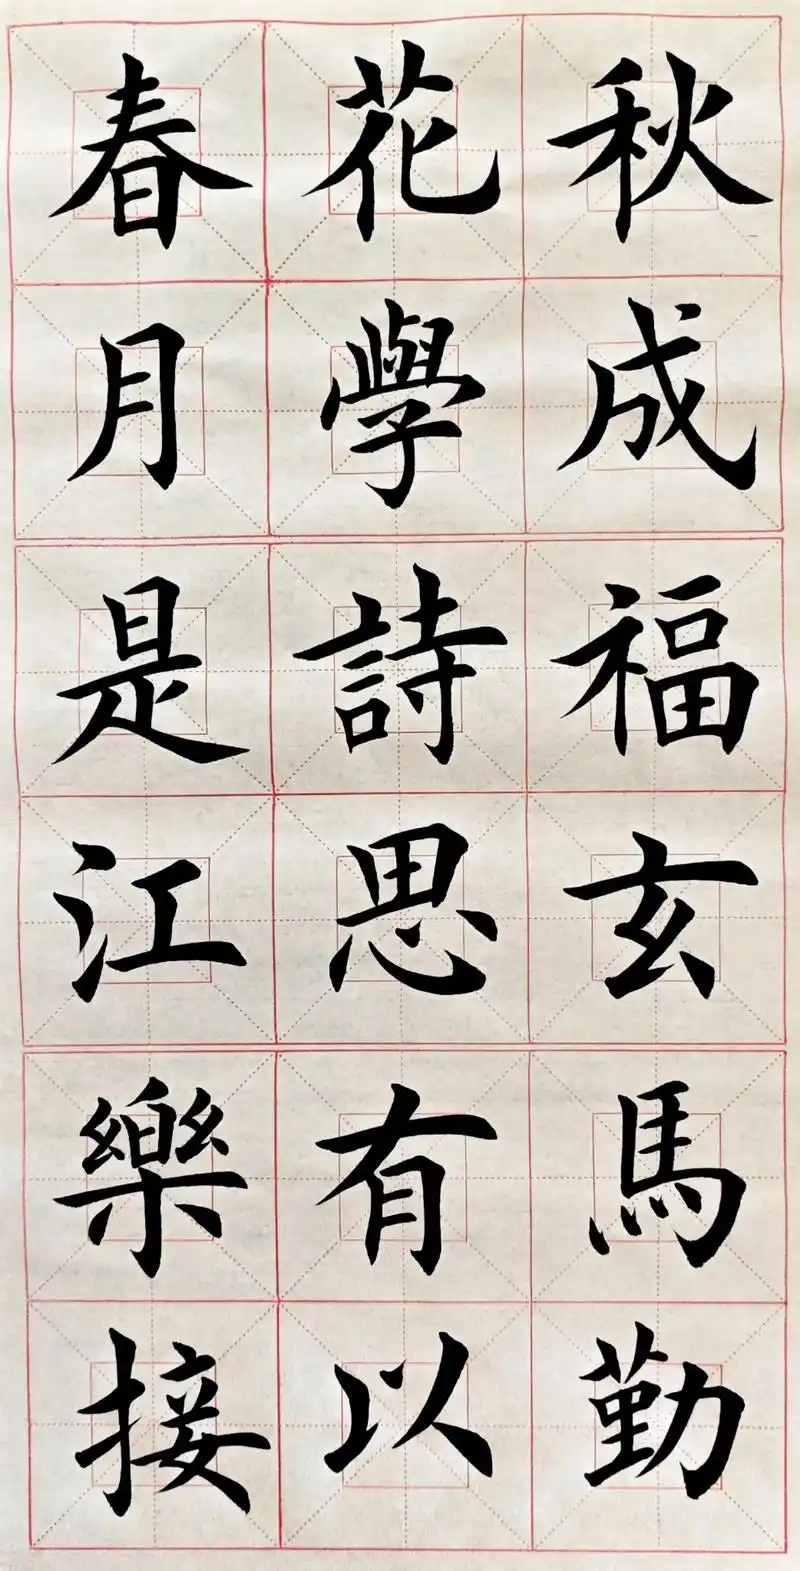 春花秋
月學成
是詩福
江思玄
樂有馬
接以勤